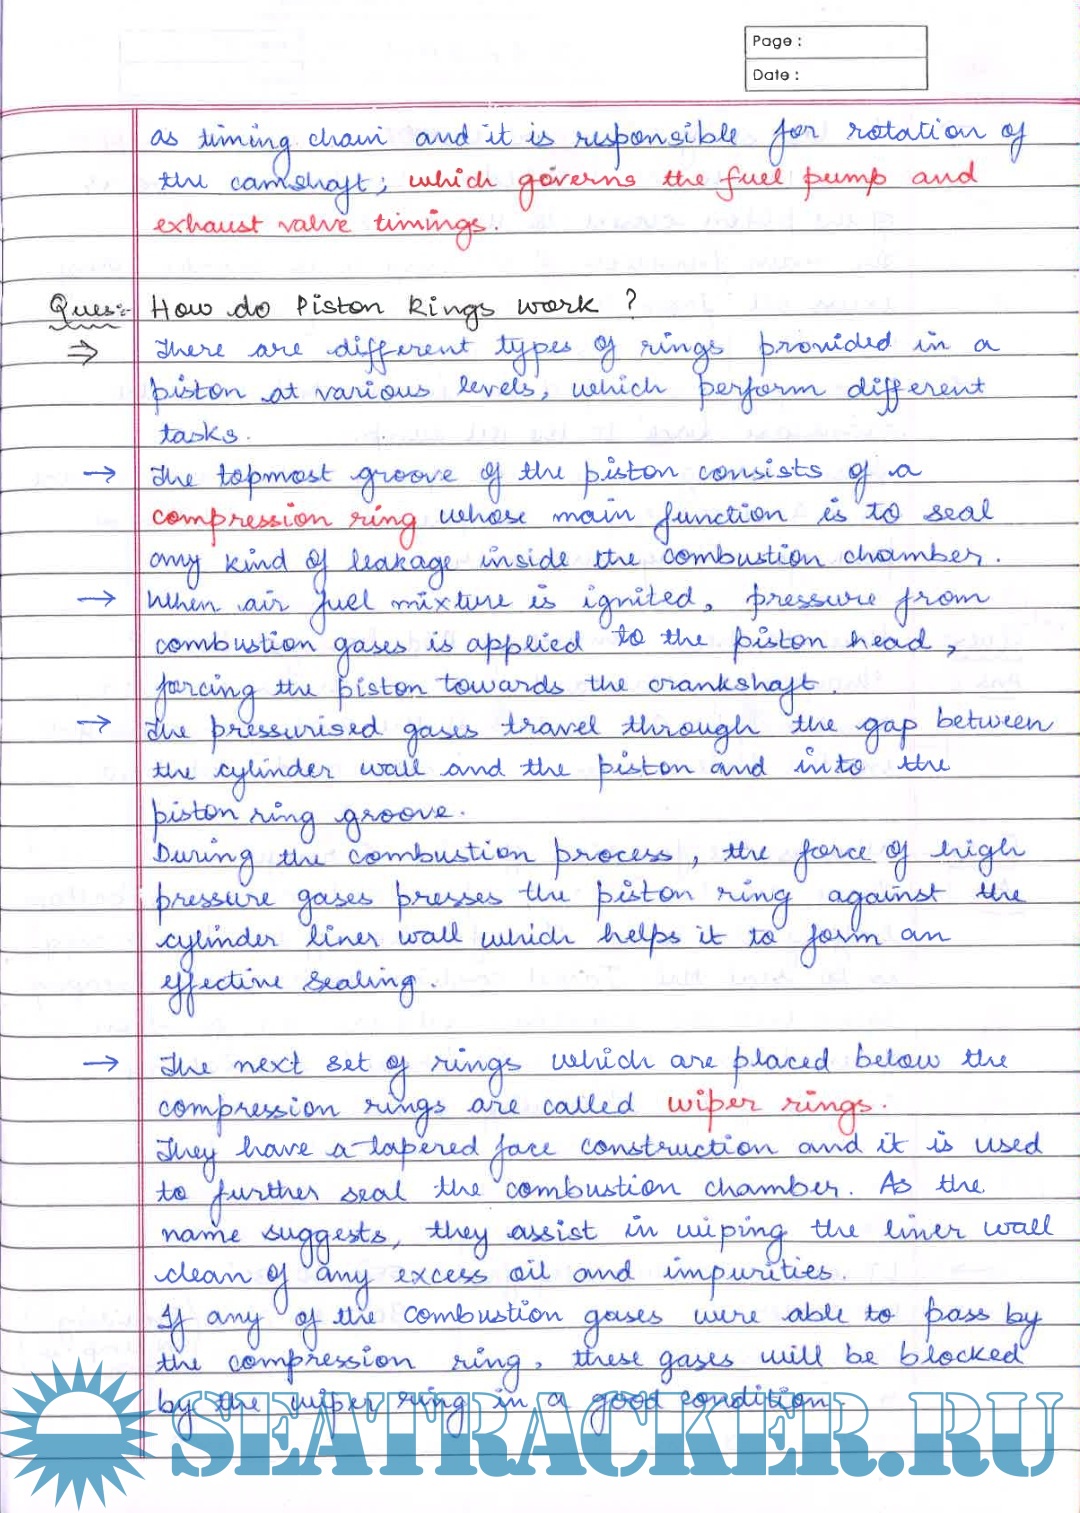 Page :
Date :
as timing chain and it is responsible for rotation of
the camshaft; which governs the fuel pump and
exhaust valve timings.
Ques:- How do Piston Rings work ?
⇒ There are different types of rings provided in a
piston at various levels, which perform different
tasks.
→ The topmost groove of the piston consists of a
compression ring whose main function is to seal
any kind of leakage inside the combustion chamber.
→ When air fuel mixture is ignited, pressure from
combustion gases is applied to the piston head,
forcing the piston towards the crankshaft.
→ The pressurised gases travel through the gap between
the cylinder wall and the piston and into the
piston ring groove.
During the combustion process, the force of high
pressure gases presses the piston ring against the
cylinder liner wall which helps it to form an
effective sealing.
→ The next set of rings which are placed below the
compression rings are called wiper rings.
They have a tapered face construction and it is used
to further seal the combustion chamber. As the
name suggests, they assist in wiping the liner wall
clean of any excess oil and impurities.
If any of the combustion gases were able to pass by
the compression ring, these gases will be blocked
by the wiper ring in a good condition
SEATRACKER.RU